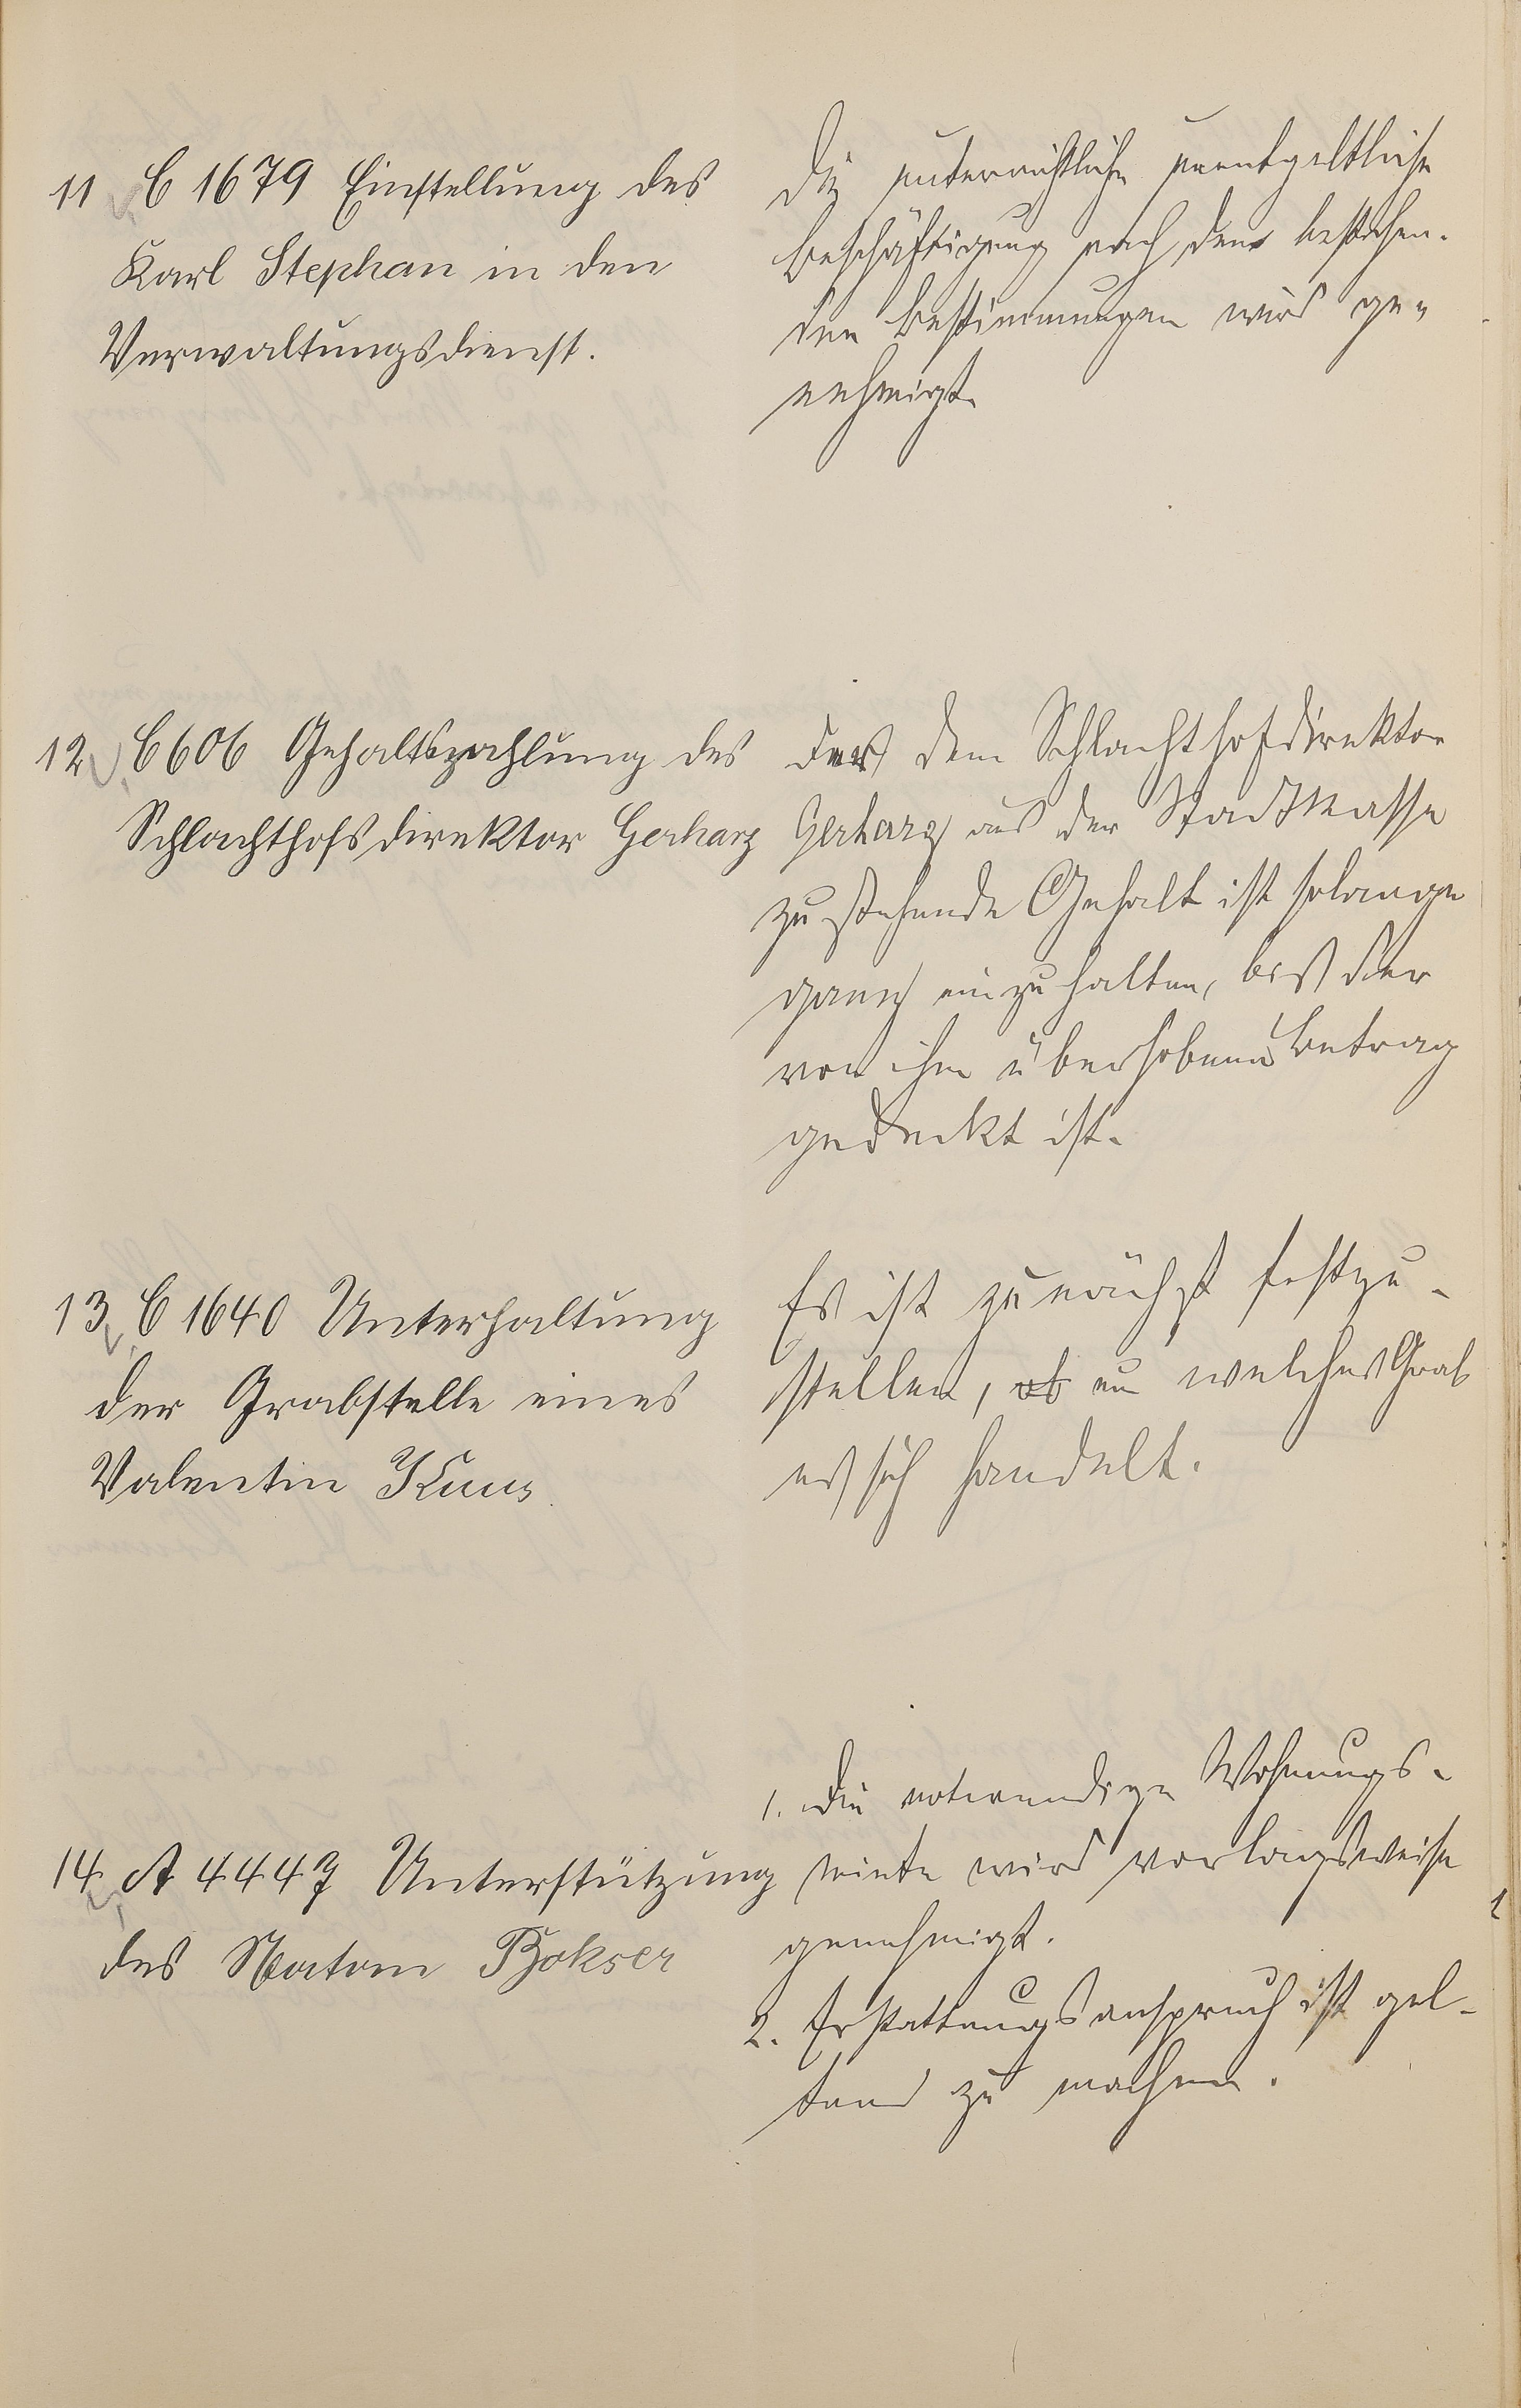 11 C 1679 Einstellung des
Karl Stephan in den
Verwaltungsdienst.
Die unterrichtliche unentgeltliche
Beschäftigung nach den bestehen-
den Bestimmungen wird ge-
nehmigt.
12 C 606 Gehaltszahlung des
Schlachthofsdirektor Gerharz
Das dem Schlachthofdirektor
Gerharz aus der Stadtkasse
zustehende Gehalt ist solange
ganz einzuhalten, bis der
von ihm überhobene Betrag
gedeckt ist.
13 C 1640 Unterhaltung
der Grabstelle eines
Valentin Kuus
Es ist zunächst festzu-
stellen, ob um welches Grab
es sich handelt.
14 A 4447 Unterstützung
des Natam Bokser
1. Die notwendige Wohnungs-
miete wird vorlagsweise
genehmigt.
2. Erstattungsanspruch ist gel-
tend zu machen.